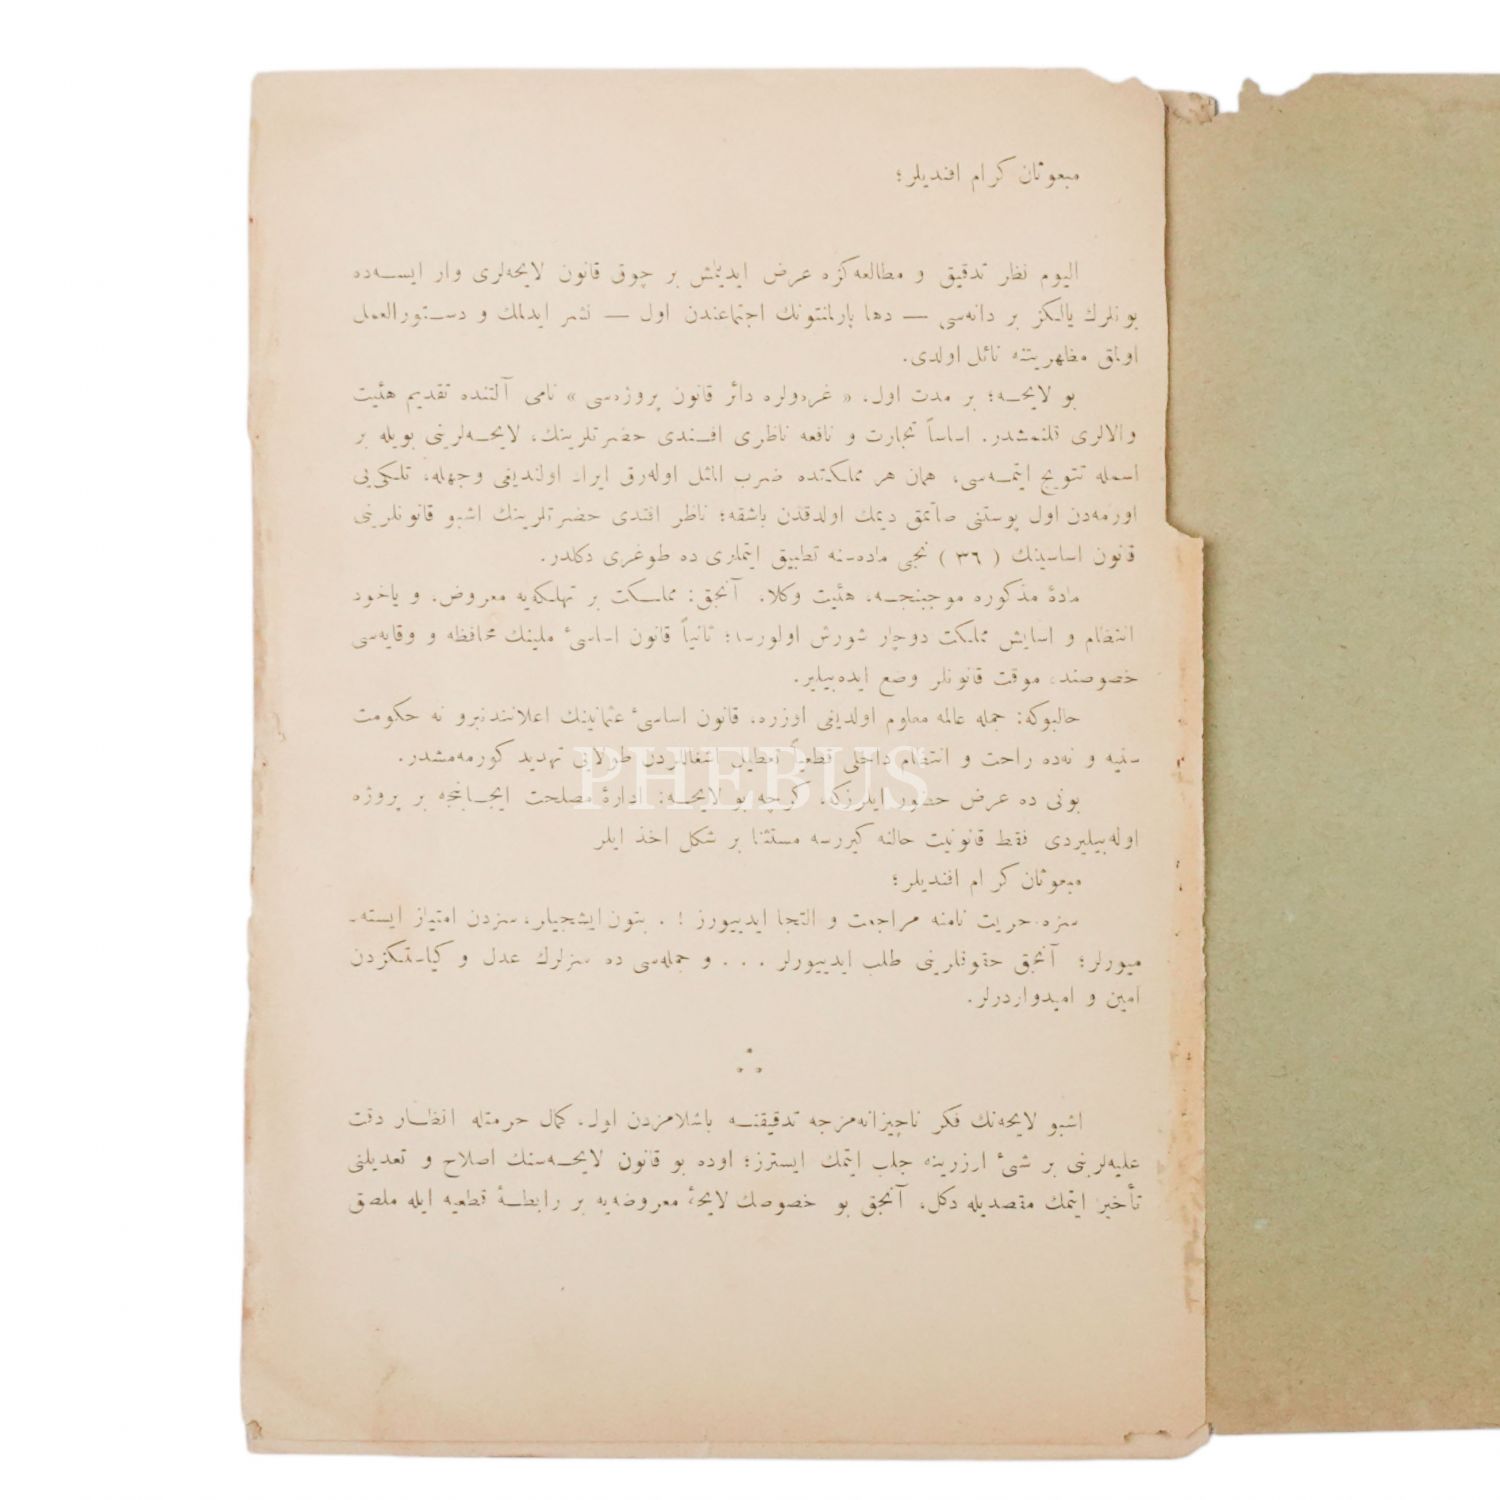 مبعوثان كرام افنديلر؛
اليوم نظر تدقيق و مطالعه‌كزه عرض ايديلمش بر چوق قانون لايحه‌لرى وار ايســه‌ده
بونلرك يالكز بر دانه‌سى — دها پارلمنتونك اجتماعندن اول — نشر ايدلمك و دستورالعمل
اولمق مظهريتنه نائل اولدى.
بو لايحــه؛ بر مدت اول، « غره‌ولره دائر قانون پروژه‌سى » نامى آلتنده تقديم هئيت
والالرى قلنمشدر. اساساً تجارت و نافعه ناظرى افــندى حضرتلرينك، لايحــه‌لرينى بويله بر
اسمله تتويج ايتمــه‌سى، همان هر مملكتده ضرب المثل اوله‌رق ايراد اولنديغى وجهله، تلكى‌يى
اورمه‌دن اول پوستنى صاتمق ديمك اولدقدن باشقه؛ ناظر افندى حضرتلرينك اشبو قانونلرينى
قانون اساسينك ( ٣٦ ) نجى ماده‌سنه تطبيق ايتملرى ده طوغرى دكلدر.
مادهٔ مذكوره موجبنجــه، هئيت وكلا، آنجق: مملــكت بر تهلكه‌يه معروض، و ياخود
انتظام و اسايش مملكت دوچار شورش اولورسه؛ ثانياً قانون اساسىٔ ملينك محافظه و وقايه‌سى
خصوصنده موقت قانونلر وضع ايده‌بيلير.
حالبوكه: جمله عالمه معلوم اولديغى اوزره، قانون اساسىٔ عثمانينك اعلانندنبرو نه حكومت
سنيه و نه‌ده راحت و انتظام داخلى قطعياً تعطيل اشغاللردن طولايى تهديد كورمه‌مشدر.
بونى ده عرض حضور ايلرزكه، كرچه بو لايحــه: ادارهٔ مصلحت ايجــابنجه بر پروژه
اوله‌بيليردى فقط قانونيت حالنه كيررسه مستثنا بر شكل اخذ ايلر
مبعوثان كرام افنديلر؛
سزه حريت نامنه مراجعت و التجا ايدييورز ! . بتون ايشجيلر، سزدن امتياز ايسته-
ميورلر؛ آنجق حقوقلرينى طلب ايدييورلر . . . و جمله‌سى ده سزلرك عدل و كياستكزدن
امين و اميدواردرلر.
اشبو لايحه‌نك فكر ناچيزانه‌مزجه تدقيقنــه باشلامزدن اول، كمال حرمتله انظــار دقت
عليه‌لرينى بر شىٔ اوزرينه جلب ايتمك ايسترز؛ اوده بو قانون لايحــه‌سنك اصلاح و تعديلنى
تأخير ايتمك مقصديله دكل، آنجق بو خصوصك لايحهٔ معروضه‌يه بر رابطــهٔ قطعيه ايله ملصق
PHEBUS